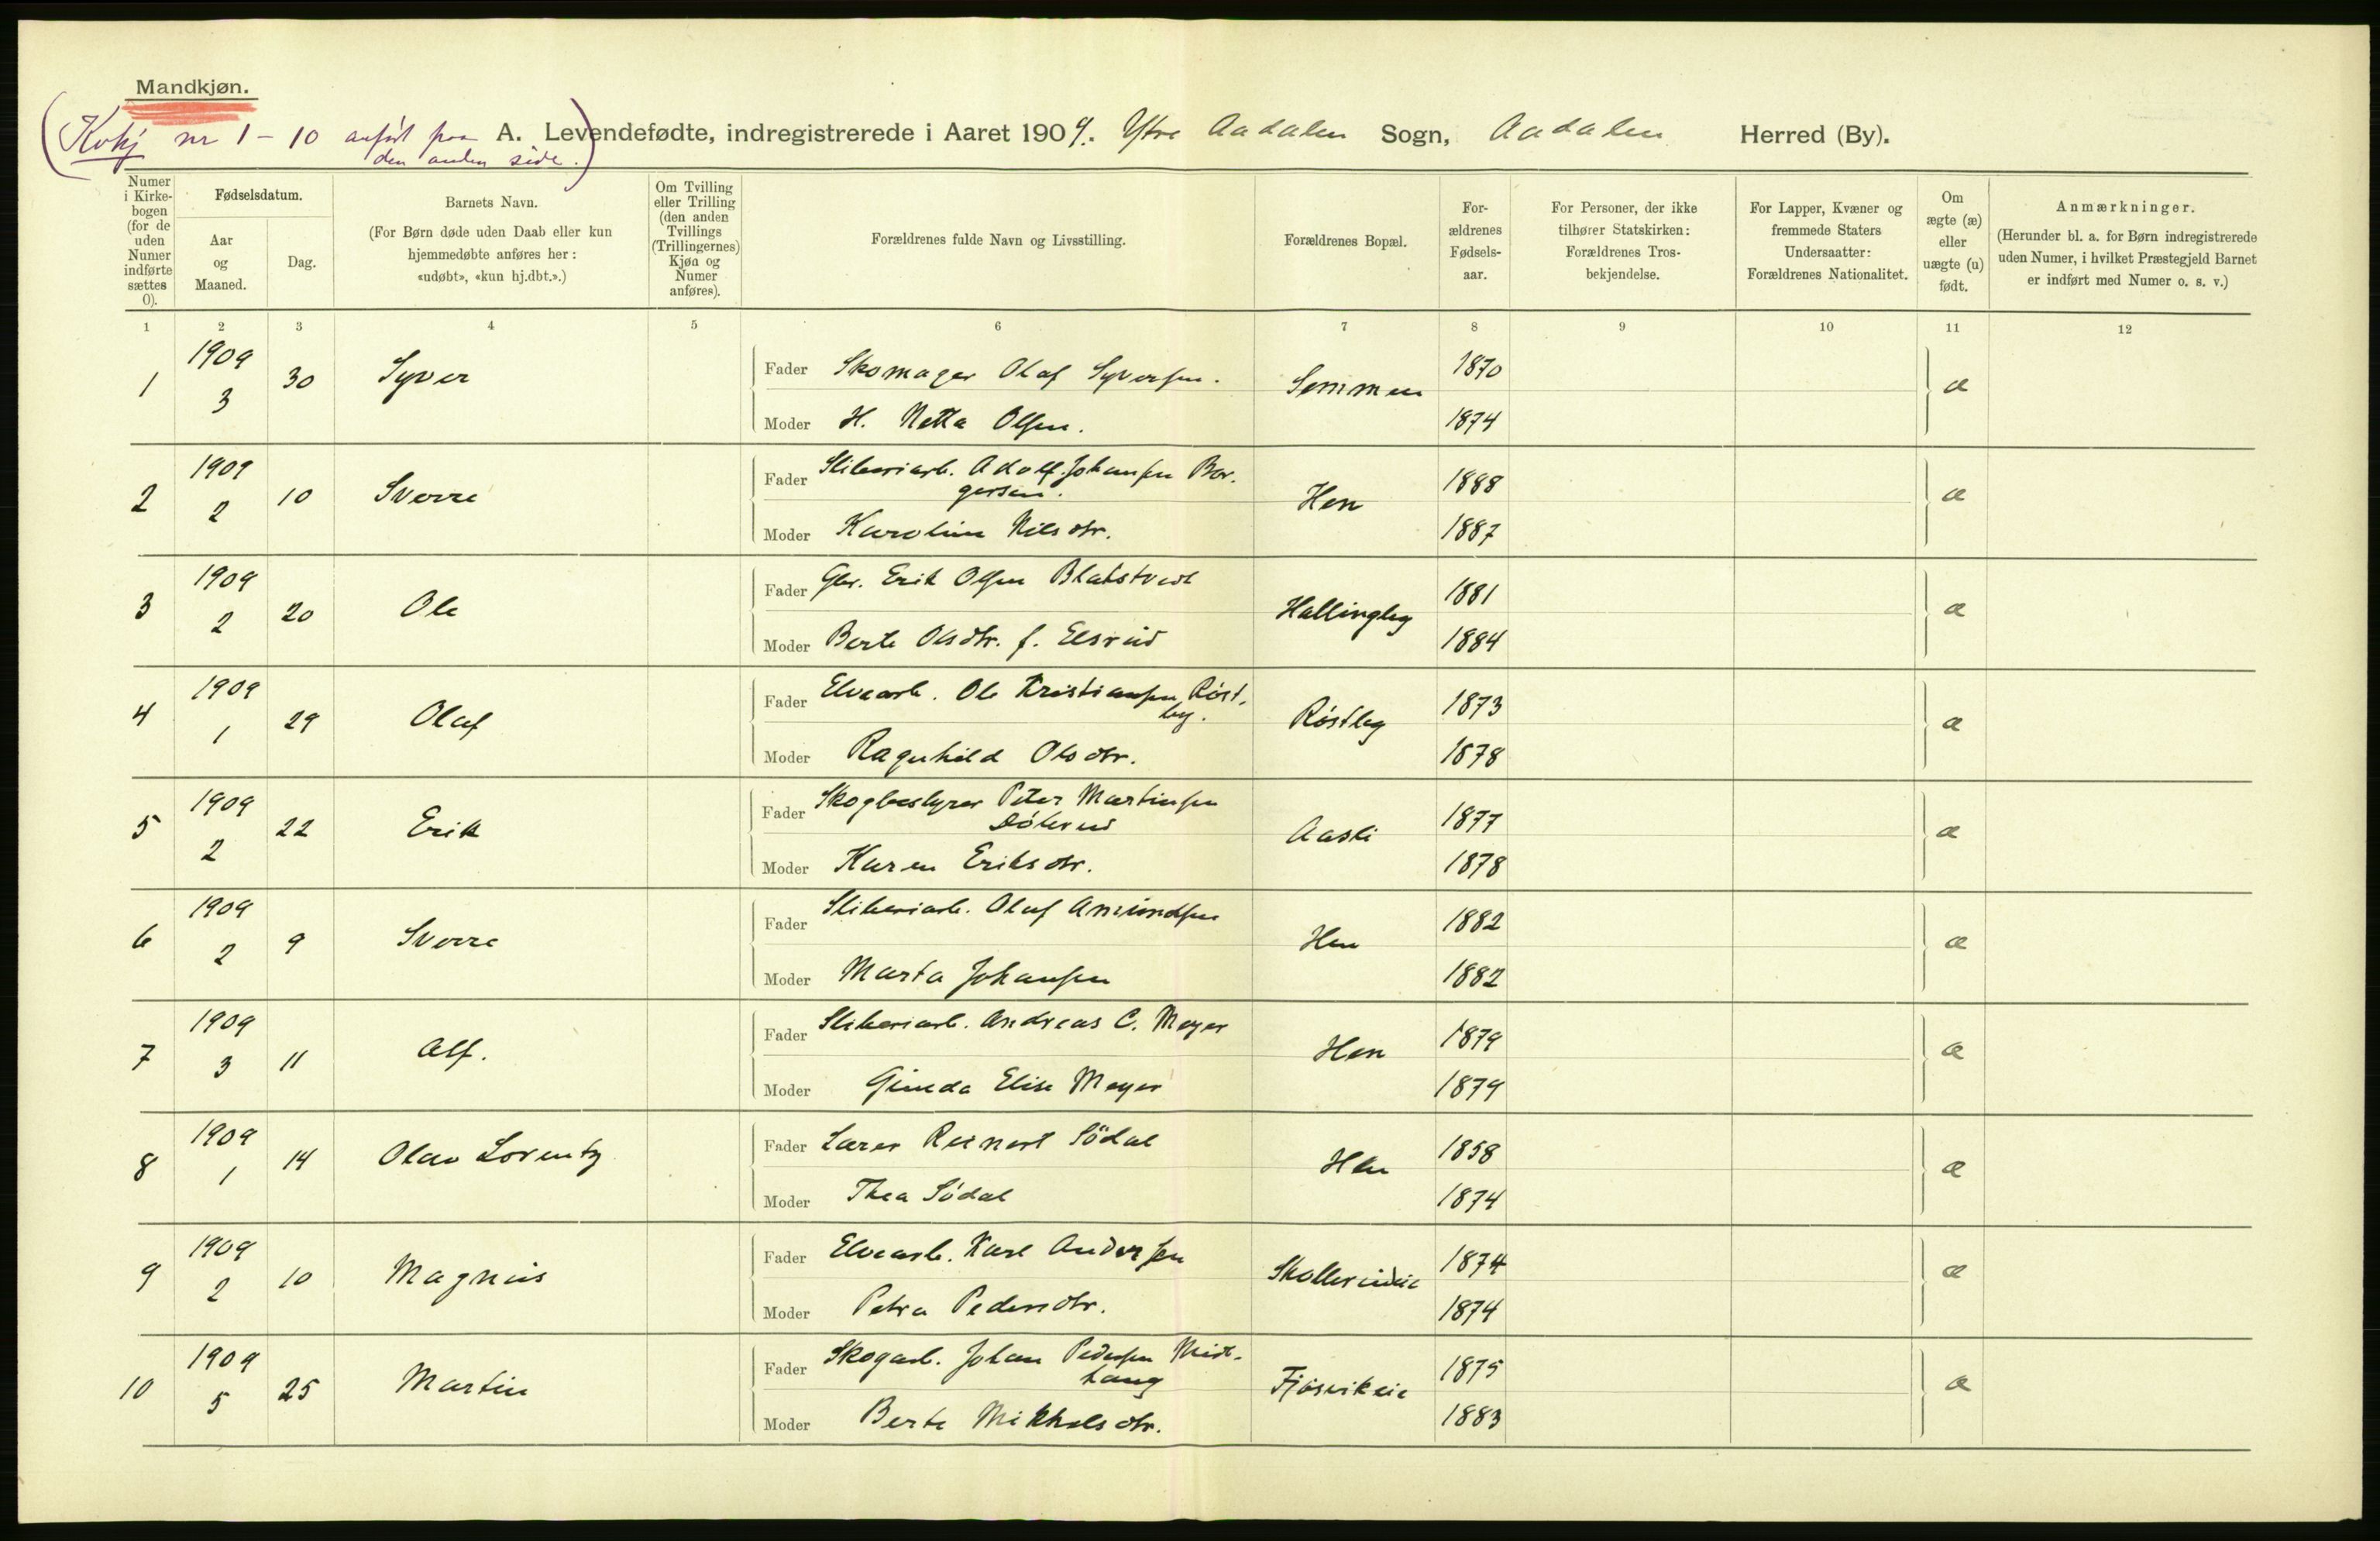 Mandkjøn.
(Kvkj nr 1 – 10 anført paa den anden side.)
A. Levendefødte, indregistrerede i Aaret 1909. Ytre Aadalen Sogn, Aadalen Herred (By).
Numer i Kirkebogen (for de uden Numer indførte sættes 0).
Fødselsdatum.
Aar og Maaned.
Dag.
Barnets Navn.
(For Børn døde uden Daab eller kun hjemmedøbte anføres her: «udøbt», «kun hj.dbt.».)
Om Tvilling eller Trilling (den anden Tvillings (Trillingernes) Kjøn og Numer anføres).
Forældrenes fulde Navn og Livsstilling.
Forældrenes Bopæl.
Forældrenes Fødselsaar.
For Personer, der ikke tilhører Statskirken: Forældrenes Trosbekjendelse.
For Lapper, Kvæner og fremmede Staters Undersaatter: Forældrenes Nationalitet.
Om ægte (æ) eller uægte (u) født.
Anmærkninger.
(Herunder bl. a. for Børn indregistrerede uden Numer, i hvilket Præstegjeld Barnet er indført med Numer o. s. v.)
1 2 3 4 5 6 7 8 9 10 11 12
1 1909 3 30 Syver Fader Skomager Olaf Syversen. Semmen 1870 æ
Moder H. Netta Olsen. 1874
2 1909 2 10 Sverre Fader Sliberiarb. Adolf Johansen Borgersen. Hen 1888 æ
Moder Karoline Nilsdtr. 1887
3 1909 2 20 Ole Fader Gbr. Erik Olsen Blakstvedt Hallingby 1881 æ
Moder Berte Olsdtr. f. Elsrud 1884
4 1909 1 29 Olaf Fader Elvearb. Ole Kristiansen Røstby. Røstby 1873 æ
Moder Ragnhild Olsdtr. 1878
5 1909 2 22 Erik Fader Skogbestyrer Peter Martinsen Dølerud Aasli 1877 æ
Moder Karen Eriksdtr. 1878
6 1909 2 9 Sverre Fader Sliberiarb. Olaf Amundsen Hen 1882 æ
Moder Marta Johansen 1882
7 1909 3 11 Alf. Fader Sliberiarb. Andreas C. Meyer Hen 1879 æ
Moder Gunda Elise Meyer 1879
8 1909 1 14 Olav Lorentz Fader Lærer Reinert Södal Hen 1858 æ
Moder Thea Södal 1874
9 1909 2 10 Magnus Fader Elvearb. Karl Andersen Skollerudeie 1874 æ
Moder Petra Pedersdtr. 1874
10 1909 5 25 Martin Fader Skogarb. Johan Pedersen Midthaug Fjøsvikeie 1875 æ
Moder Berte Mikkelsdtr. 1883